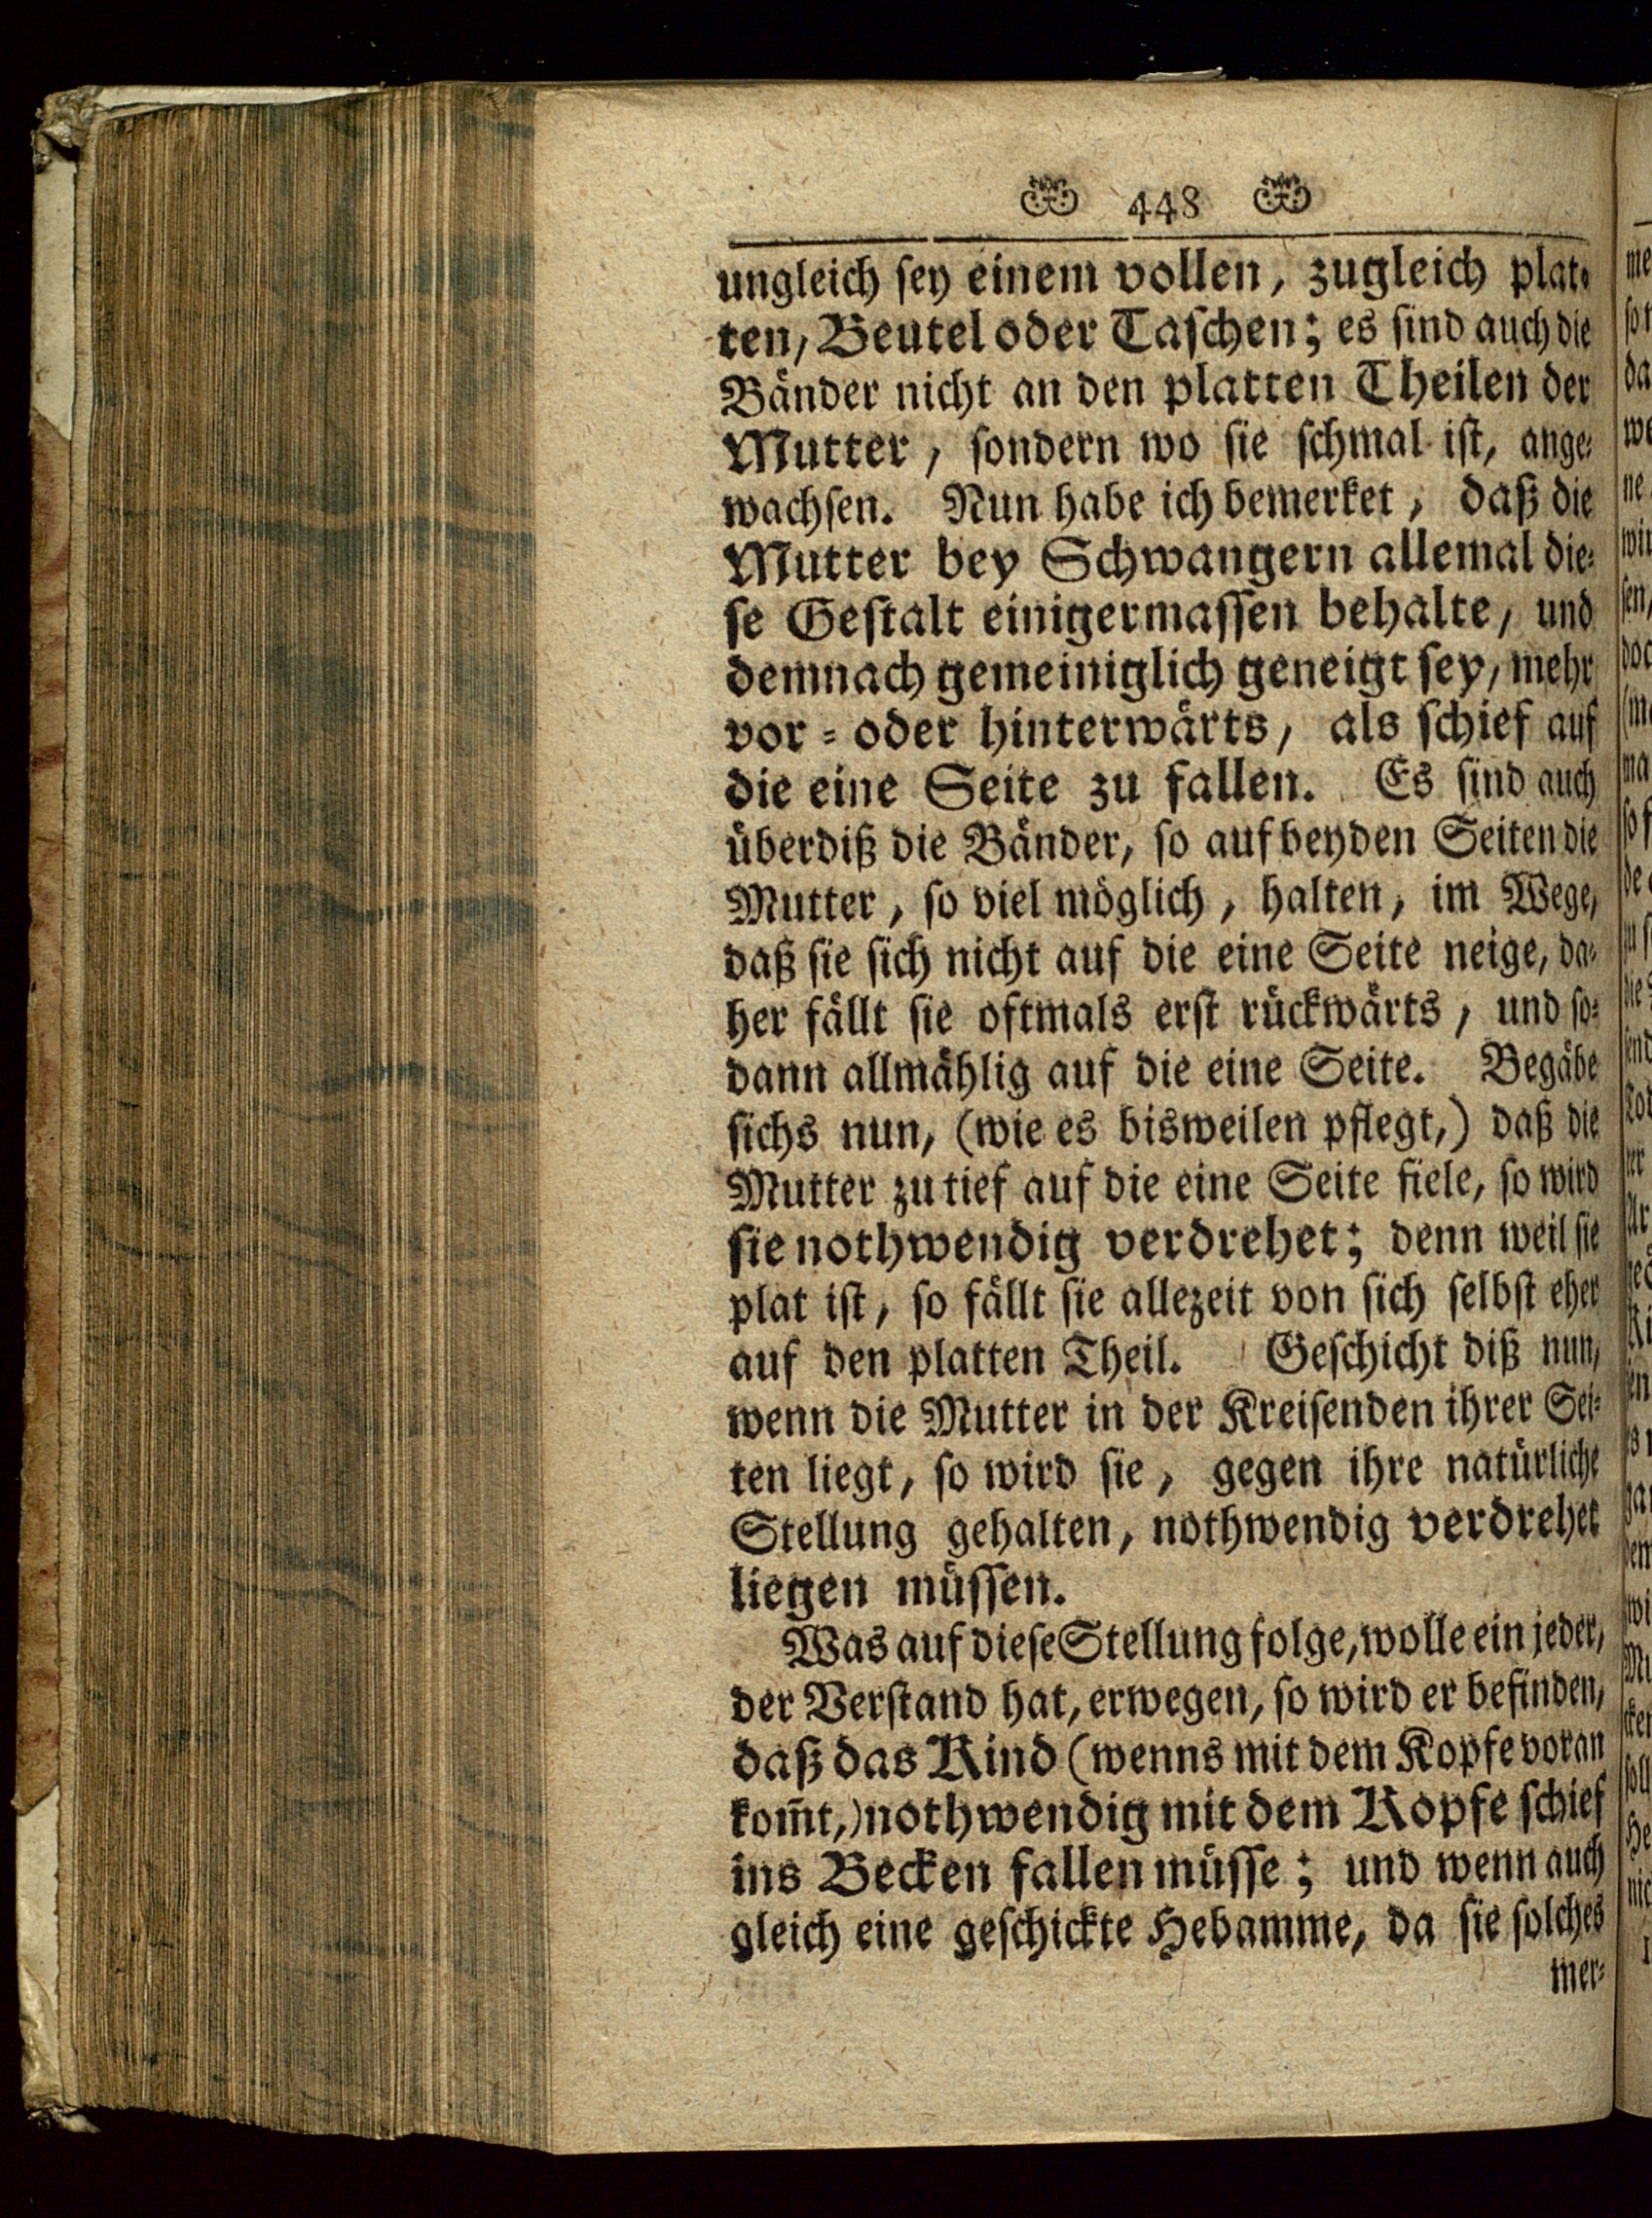 448
ungleich ſey einem vollen, zugleich plat-
ten, Beutel oder Taſchen; es ſind auch die
Bänder nicht an den platten Theilen der
Mutter, ſondern wo ſie ſchmal iſt, ange-
wachſen. Nun habe ich bemerket, daß die
Mutter bey Schwangern allemal die-
ſe Geſtalt einigermaſſen behalte, und
demnach gemeiniglich geneigt ſey, mehr
vor- oder hinterwärts, als ſchief auf
die eine Seite zu fallen. Es ſind auch
überdiß die Bänder, ſo auf beyden Seiten die
Mutter, ſo viel möglich, halten, im Wege,
daß ſie ſich nicht auf die eine Seite neige, da-
her fällt ſie oftmals erſt rückwärts, und ſo-
dann allmählig auf die eine Seite. Begäbe
ſichs nun, (wie es bisweilen pflegt,) daß die
Mutter zu tief auf die eine Seite fiele, ſo wird
ſie nothwendig verdrehet; denn weil ſie
plat iſt, ſo fällt ſie allezeit von ſich ſelbſt eher
auf den platten Theil. Geſchicht diß nun,
wenn die Mutter in der Kreiſenden ihrer Sei-
ten liegt, ſo wird ſie, gegen ihre natürliche
Stellung gehalten, nothwendig verdrehet
liegen müſſen.
Was auf dieſe Stellung folge, wolle ein jeder,
der Verſtand hat, erwegen, ſo wird er befinden,
daß das Kind (wenns mit dem Kopfe voran
kom̃t,) nothwendig mit dem Kopfe ſchief
ins Becken fallen müſſe; und wenn auch
gleich eine geſchickte Hebamme, da ſie ſolches
mer-